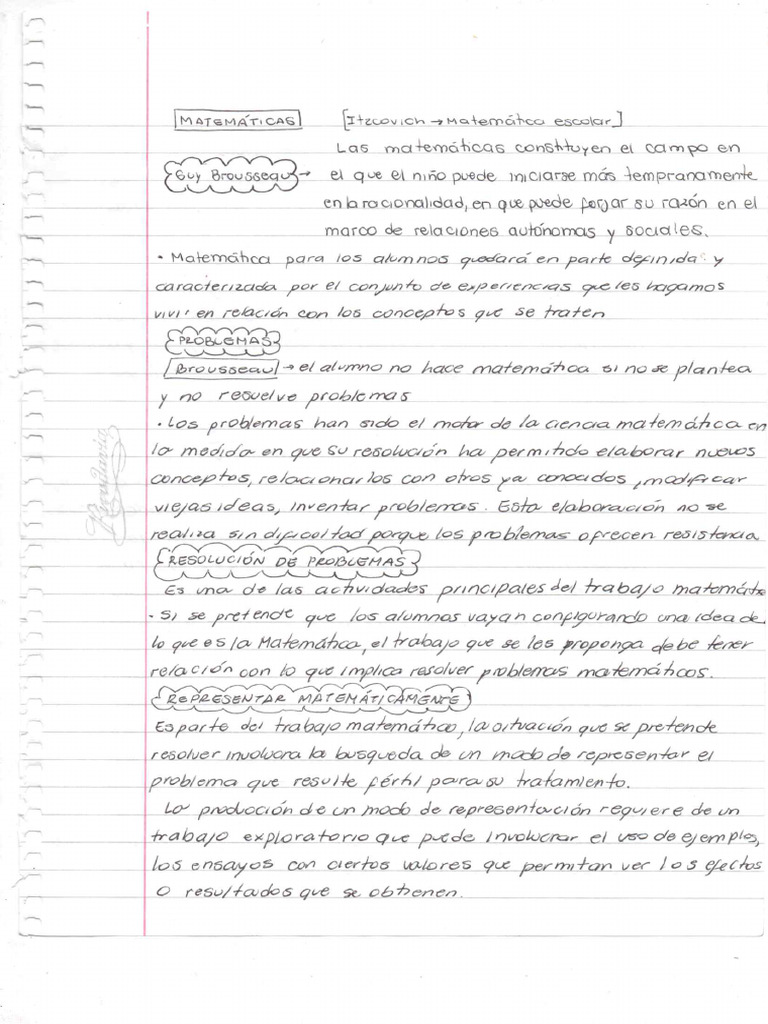 MATEMÁTICAS [Itzcovich → Matemática escolar]
Las matemáticas constituyen el campo en
Guy Brousseau → el que el niño puede iniciarse más tempranamente
en la racionalidad, en que puede forjar su razón en el
marco de relaciones autónomas y sociales.
• Matemática para los alumnos quedará en parte definida y
caracterizada por el conjunto de experiencias que les hagamos
vivir en relación con los conceptos que se traten
PROBLEMAS
Brousseau → el alumno no hace matemática si no se plantea
y no resuelve problemas
• Los problemas han sido el motor de la ciencia matemática en
la medida en que su resolución ha permitido elaborar nuevos
conceptos, relacionarlos con otros ya conocidos, modificar
viejas ideas, inventar problemas. Esta elaboración no se
realiza sin dificultad porque los problemas ofrecen resistencia
RESOLUCIÓN DE PROBLEMAS
Es una de las actividades principales del trabajo matemátic
• Si se pretende que los alumnos vayan configurando una idea de
lo que es la Matemática, el trabajo que se les proponga debe tener
relación con lo que implica resolver problemas matemáticos.
REPRESENTAR MATEMÁTICAMENTE
Es parte del trabajo matemático, la situación que se pretende
resolver involucra la busqueda de un modo de representar el
problema que resulte fértil para su tratamiento.
La producción de un modo de representación requiere de un
trabajo exploratorio que puede involucrar el uso de ejemplos,
los ensayos con ciertos valores que permitan ver los efectos
o resultados que se obtienen.
Rivadavia